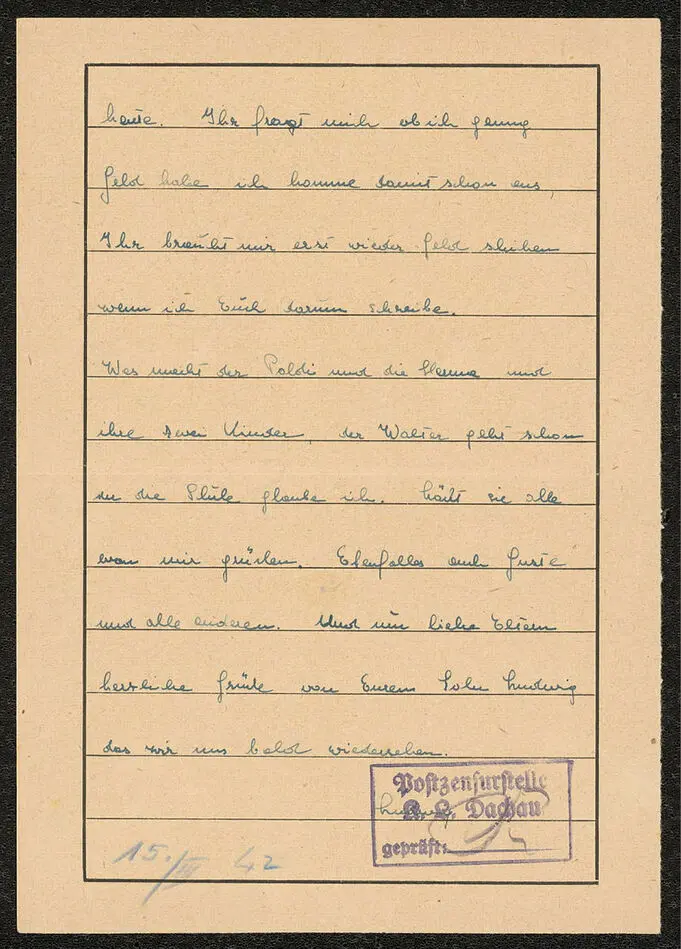 heute. Ihr fragt mich ob ich genug
Geld habe ich komme damit schon aus,
Ihr braucht mir erst wieder Geld schicken
wenn ich Euch darum schreibe.
Was macht der Poldi und die und
ihre zwei Kinder, der Walter geht schon
in die Schule glaube ich. Laßt sie alle
von mir grüßen. Ebenfalls auch Guste
und alle anderen. Und nun liebe Eltern
herzliche Grüße von Eurem Sohn Ludwig
das wir uns bald wiedersehen.
Postzensurstelle
Ludwig
K. L. Dachau
geprüft:
15./III 42